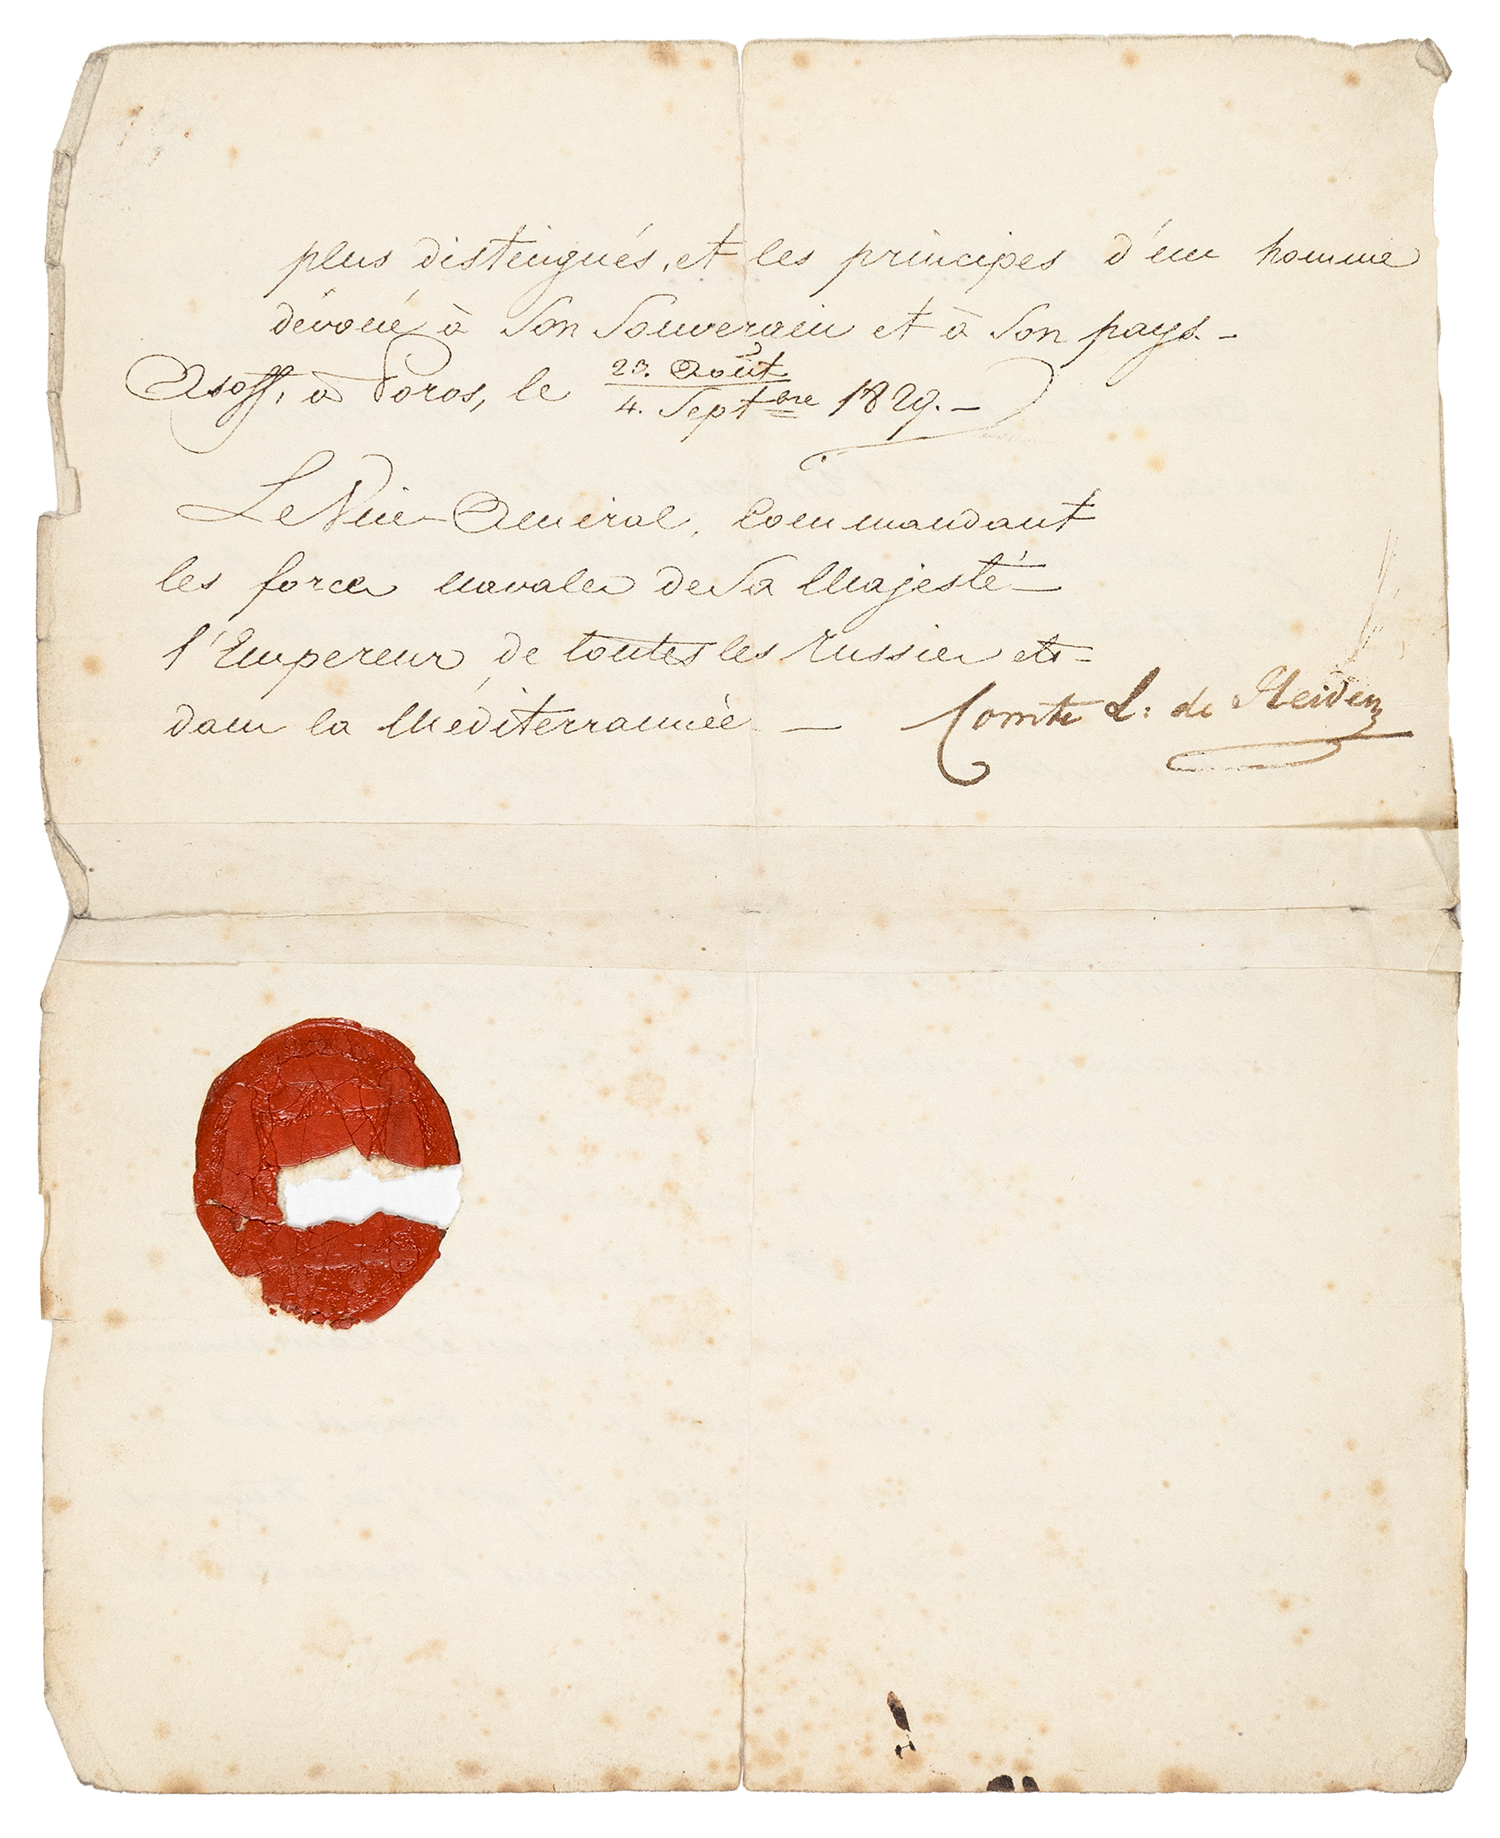 plus distingués, et les principes d'un homme
dévoué à Son Souverain et à Son pays. –
Asoff, à Poros, le 23. Août / 4. Septbre 1829. –
Le Vice-Amiral, Commandant
les forces navales de Sa Majesté –
l'Empereur de toutes les Russies etc
dans la Méditerrannée. — Comte L: de Heiden